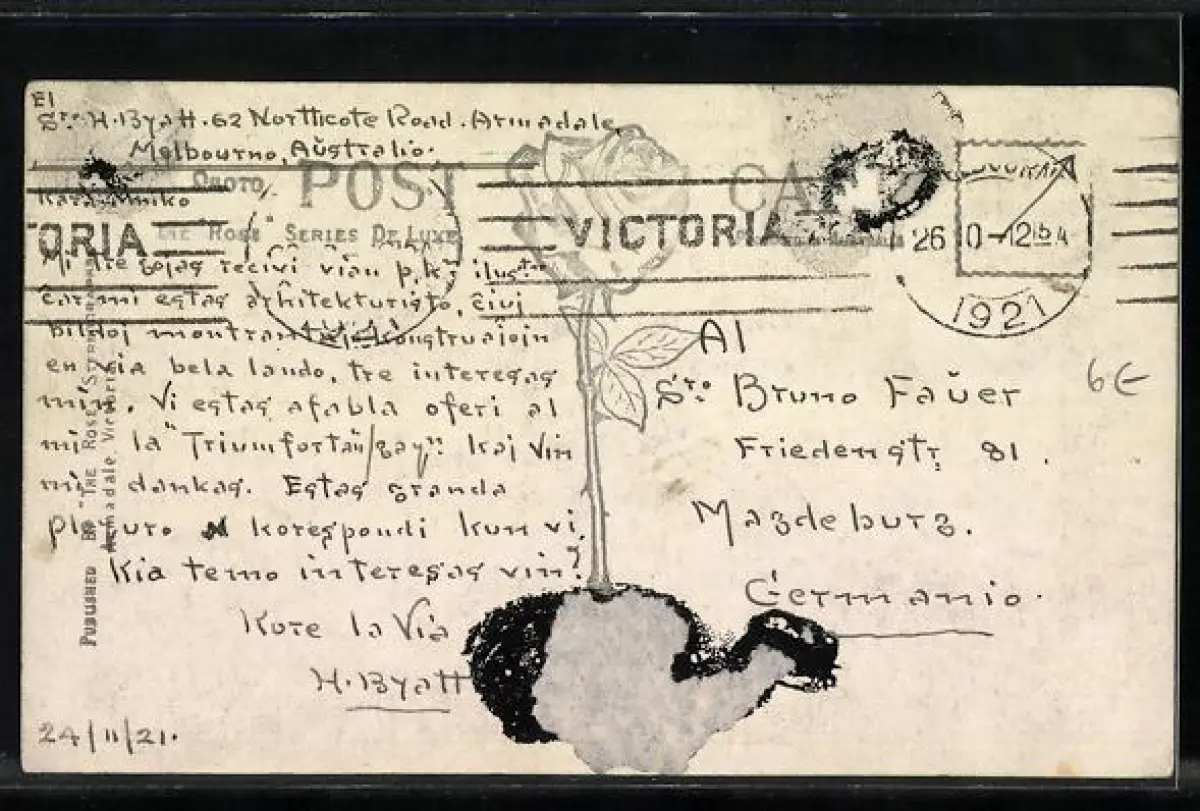 El
Sro H. Byatt. 62 Northcote Road. Armadale,
Melbourno, Aŭstralio.
PHOTO
POST
Kara Amiko
ORIA
VICTORIA
"ROSE" SERIES DE LUXE
26
-12 15 A
1921
Mi tre ĝojas ricevi vian p.k.
ĉar mi estas arhitekturisto, ĉiuj
bildoj montrantaj konstruaĵojn
en via bela lando, tre interesas
min. Vi estas afabla oferi al
mi la "Triumfortan/gay". Kaj Vin
mi dankas. Estas granda
plezuro korespondi kun vi.
Kia temo interesas vin?
Kore la Via
H. Byatt
24/11/21.
Al
Sro Bruno Faŭer
Friedenstr. 81.
Magdeburg.
Germanio.
6€
PUBLISHED BY "THE ROSE STEREOGRAPH
Armadale, Victoria